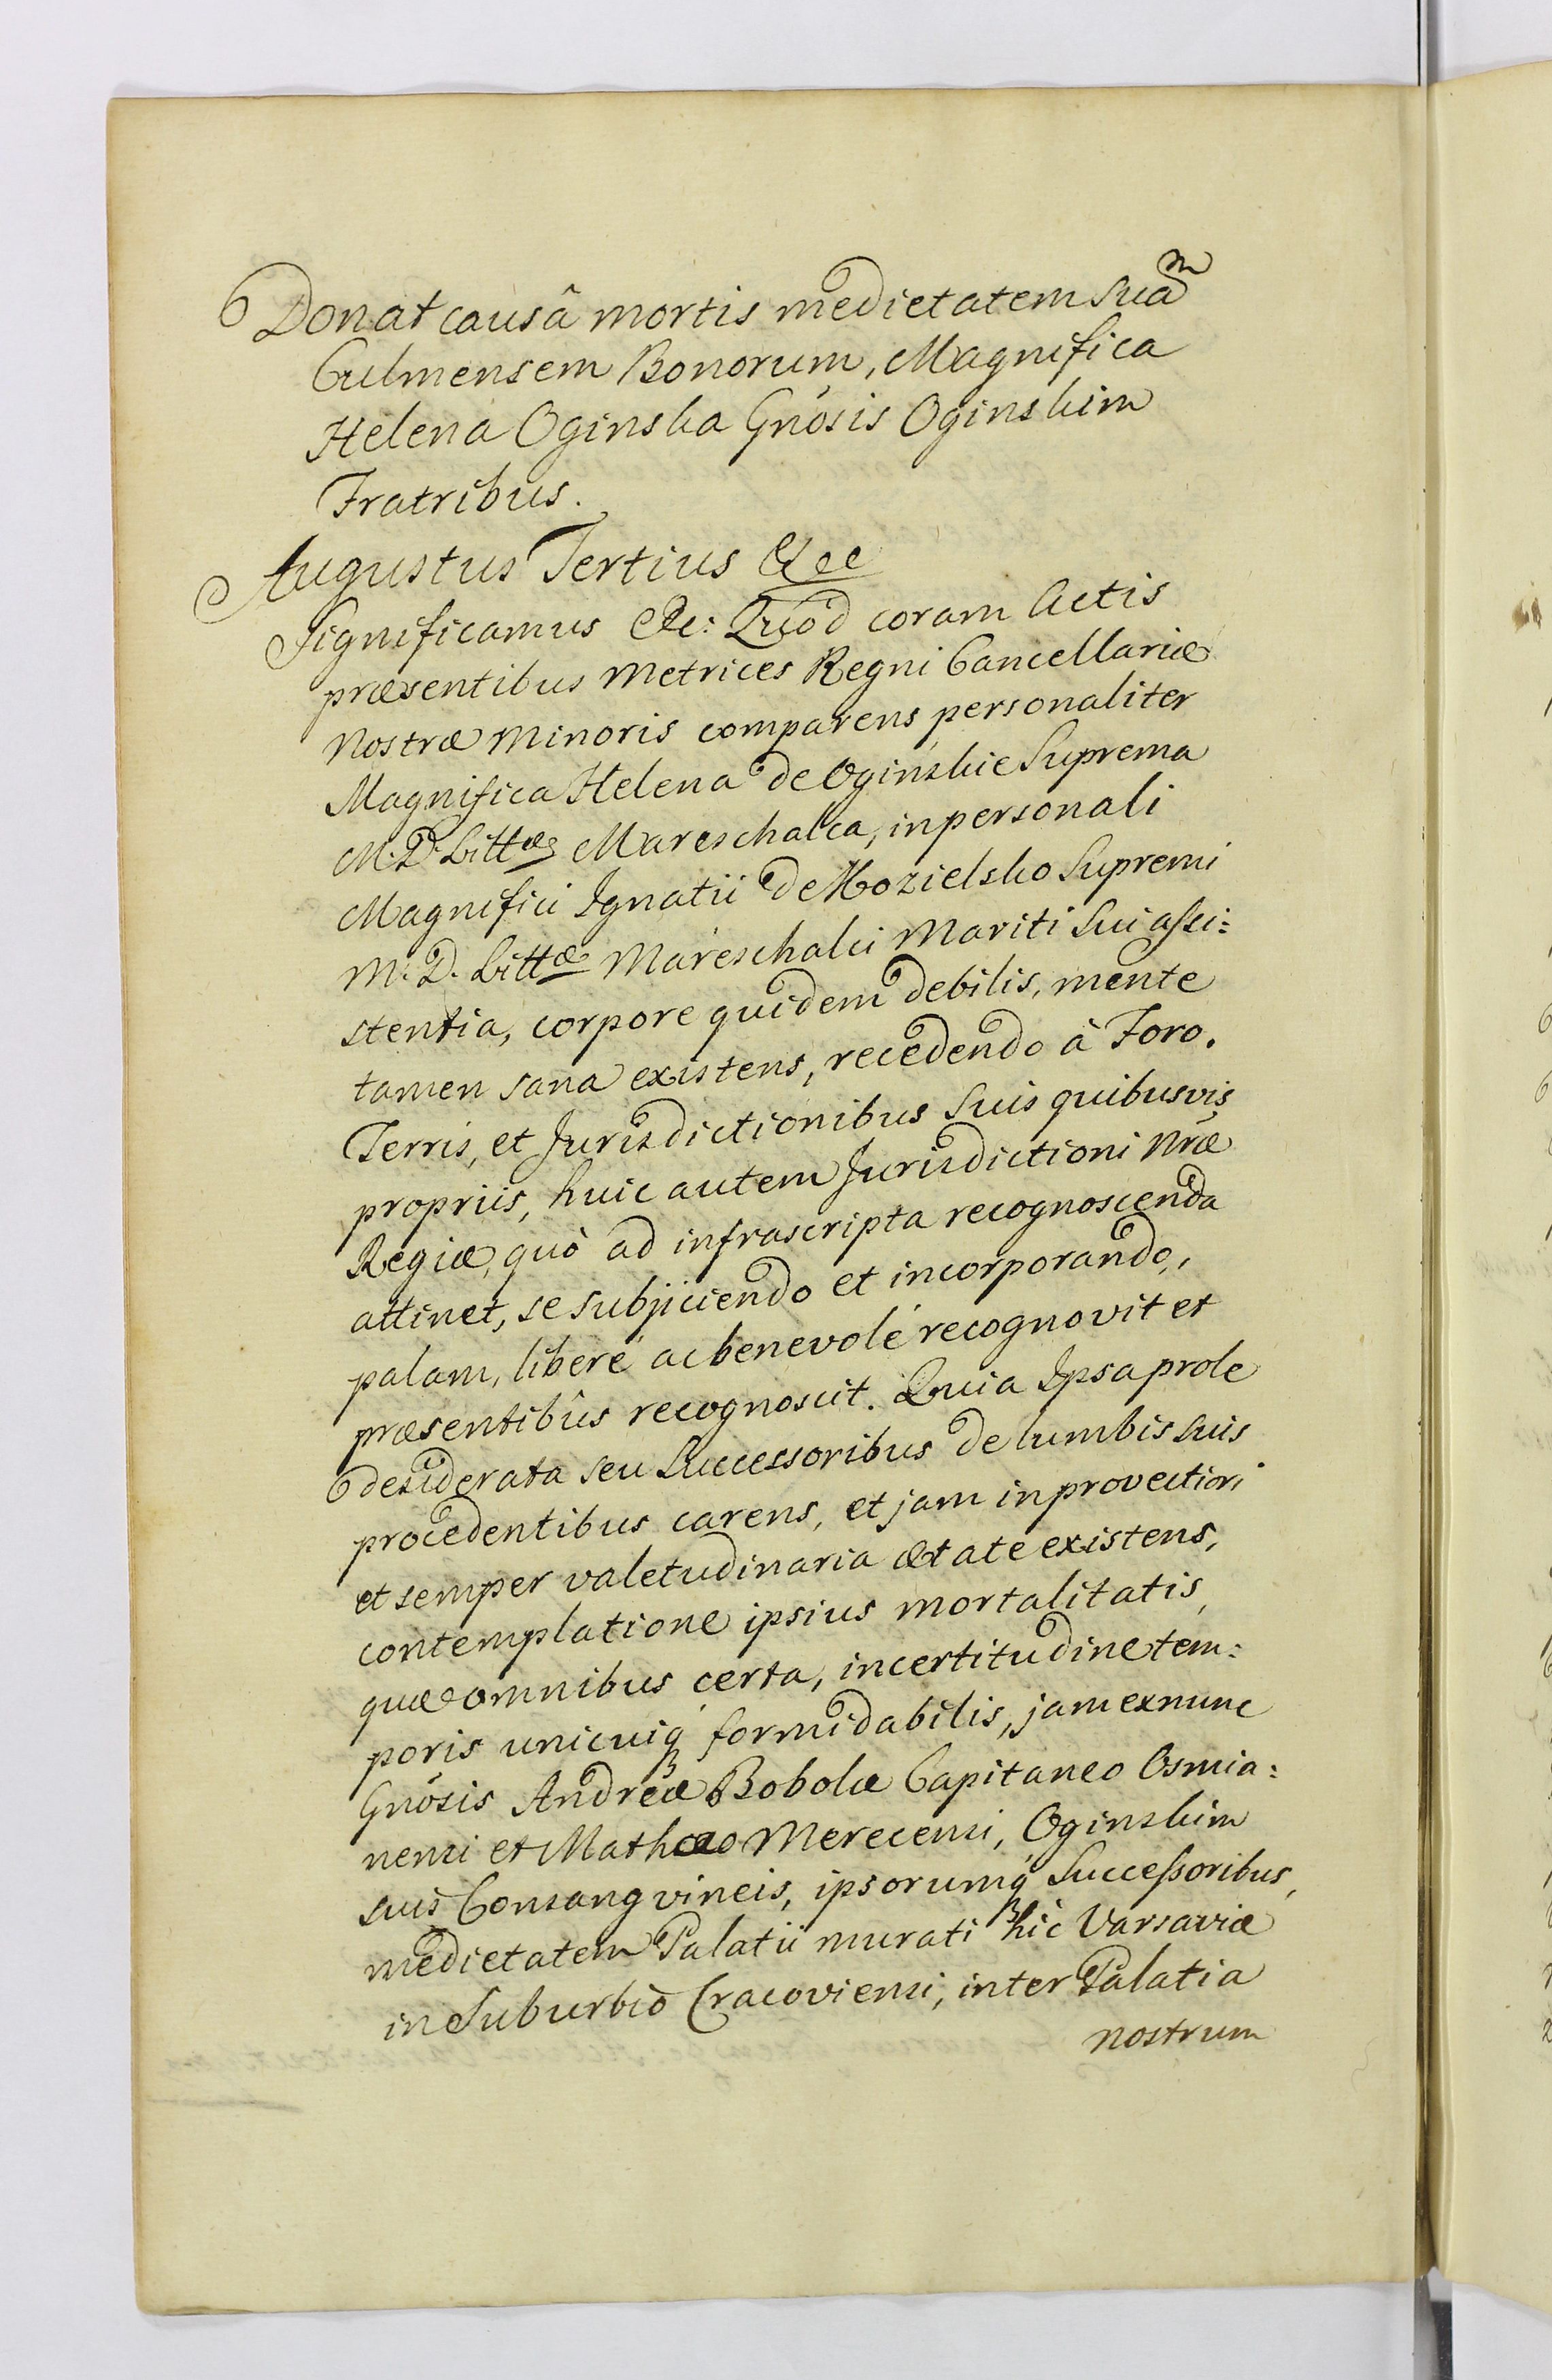 Donat causâ mortis medietatem suam
Culmensem Bonorum, Magnifica
Helena Oginska Gnosis Oginskim
Fratribus.
Augustus Tertius &cc
Significamus &c: Quod coram Actis
præsentibus Metrices Regni Cancellariæ
Nostræ Minoris comparens personaliter
Magnifica Helena de Oginskie Suprema
M. D. Littæ Mareschalca, in personali
Magnifici Ignatii de Kozielsko Supremi
M. D. Littæ Mareschalci Mariti Sui assi:
stentia, corpore quidem debilis, mente
tamen sana existens, recedendo à Foro.
Terris, et Jurisdictionibus Suis quibusvis
propriis, huic autem Jurisdictioni Nræ
Regiæ, quò ad infrascripta recognoscenda
attinet, se subjiciendo et incorporando,
palam, liberé ac benevolé recognovit et
præsentibûs recognoscit. Quia Ipsa prole
desiderata seu Successoribus de lumbis suis
procedentibus carens, et jam in provectiori
et semper valetudinaria ætate existens,
contemplatione ipsius mortalitatis,
quæ omnibus certa, incertitudine tem:
poris unicuiq formidabilis, jam ex nunc
Gnosis Andreæ Bobolæ Capitaneo Osmia:
nensi et Mathæo Merecensi, Oginskim
suis Consangvineis, ipsorumq Successoribus,
medietatem Palatii murati hic Varsaviæ
in Suburbio Cracoviensi, inter Palatia
nostrum